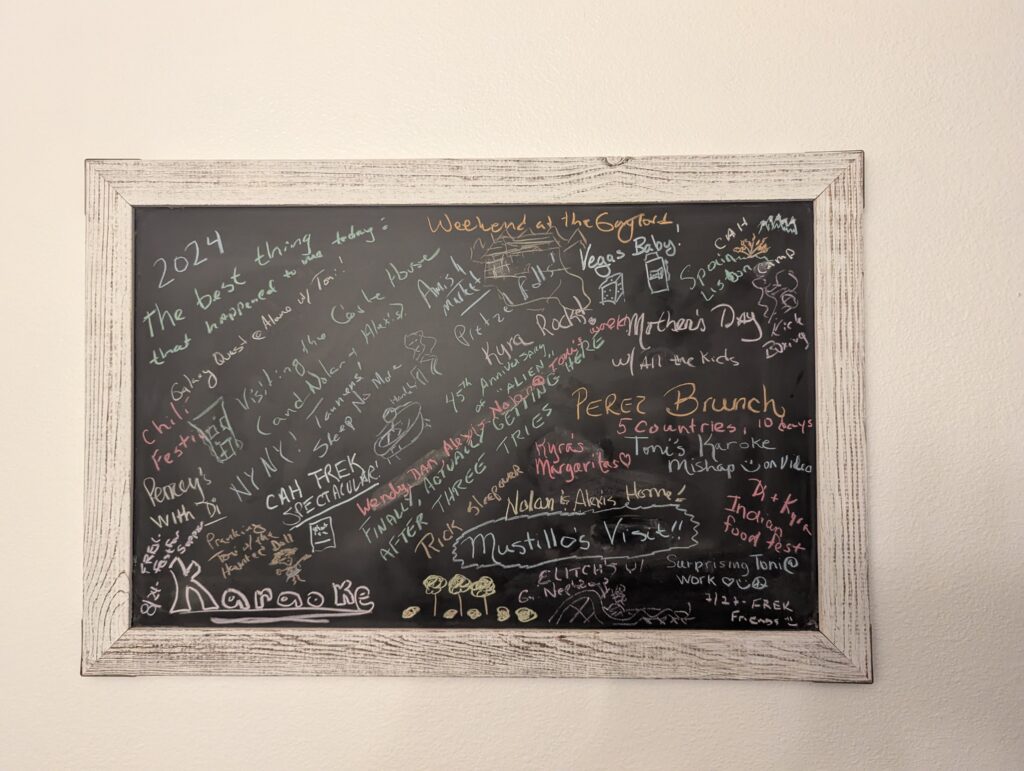 2024
The best thing
that happened to me
today:
Galaxy Quest @ Alamo w/ Toni!
Chili
Festival
Visiting the Castle House
Candnolan & Alexis!
NY NY! Tanners!
Sleep No More
Percy's
With Di
CAH TREK
SPECTACULAR!
Pranking
Toni w/ the
Haunted Doll
8/24-
Karaoke
Weekend at the Gaylord
Amish
Market
Falls!
Pretzel
Kyra Rocks!
45th Anniversary
of "ALIEN"!
Wendy, Dan, Alexis, Nolan @ Toni's work!
FINALLY ACTUALLY GETTING HERE
AFTER THREE TRIES
Rick Sleepover
Vegas Baby!
Spain
Lisbon
CAH
Camp
Kick
Boxing
Mother's Day
w/ All the Kids
PEREZ Brunch
5 Countries, 10 days
Kyra's
Margaritas♡
Toni's Karoke
Mishap on Video
Nolan & Alexis Home!
Mustillo's Visit!!
Di + Kyra
Indian
food fest
ELITCH'S w/
G. Nephews
Surprising Toni @
WORK ♡☺☮
7/27- FREK
Friends